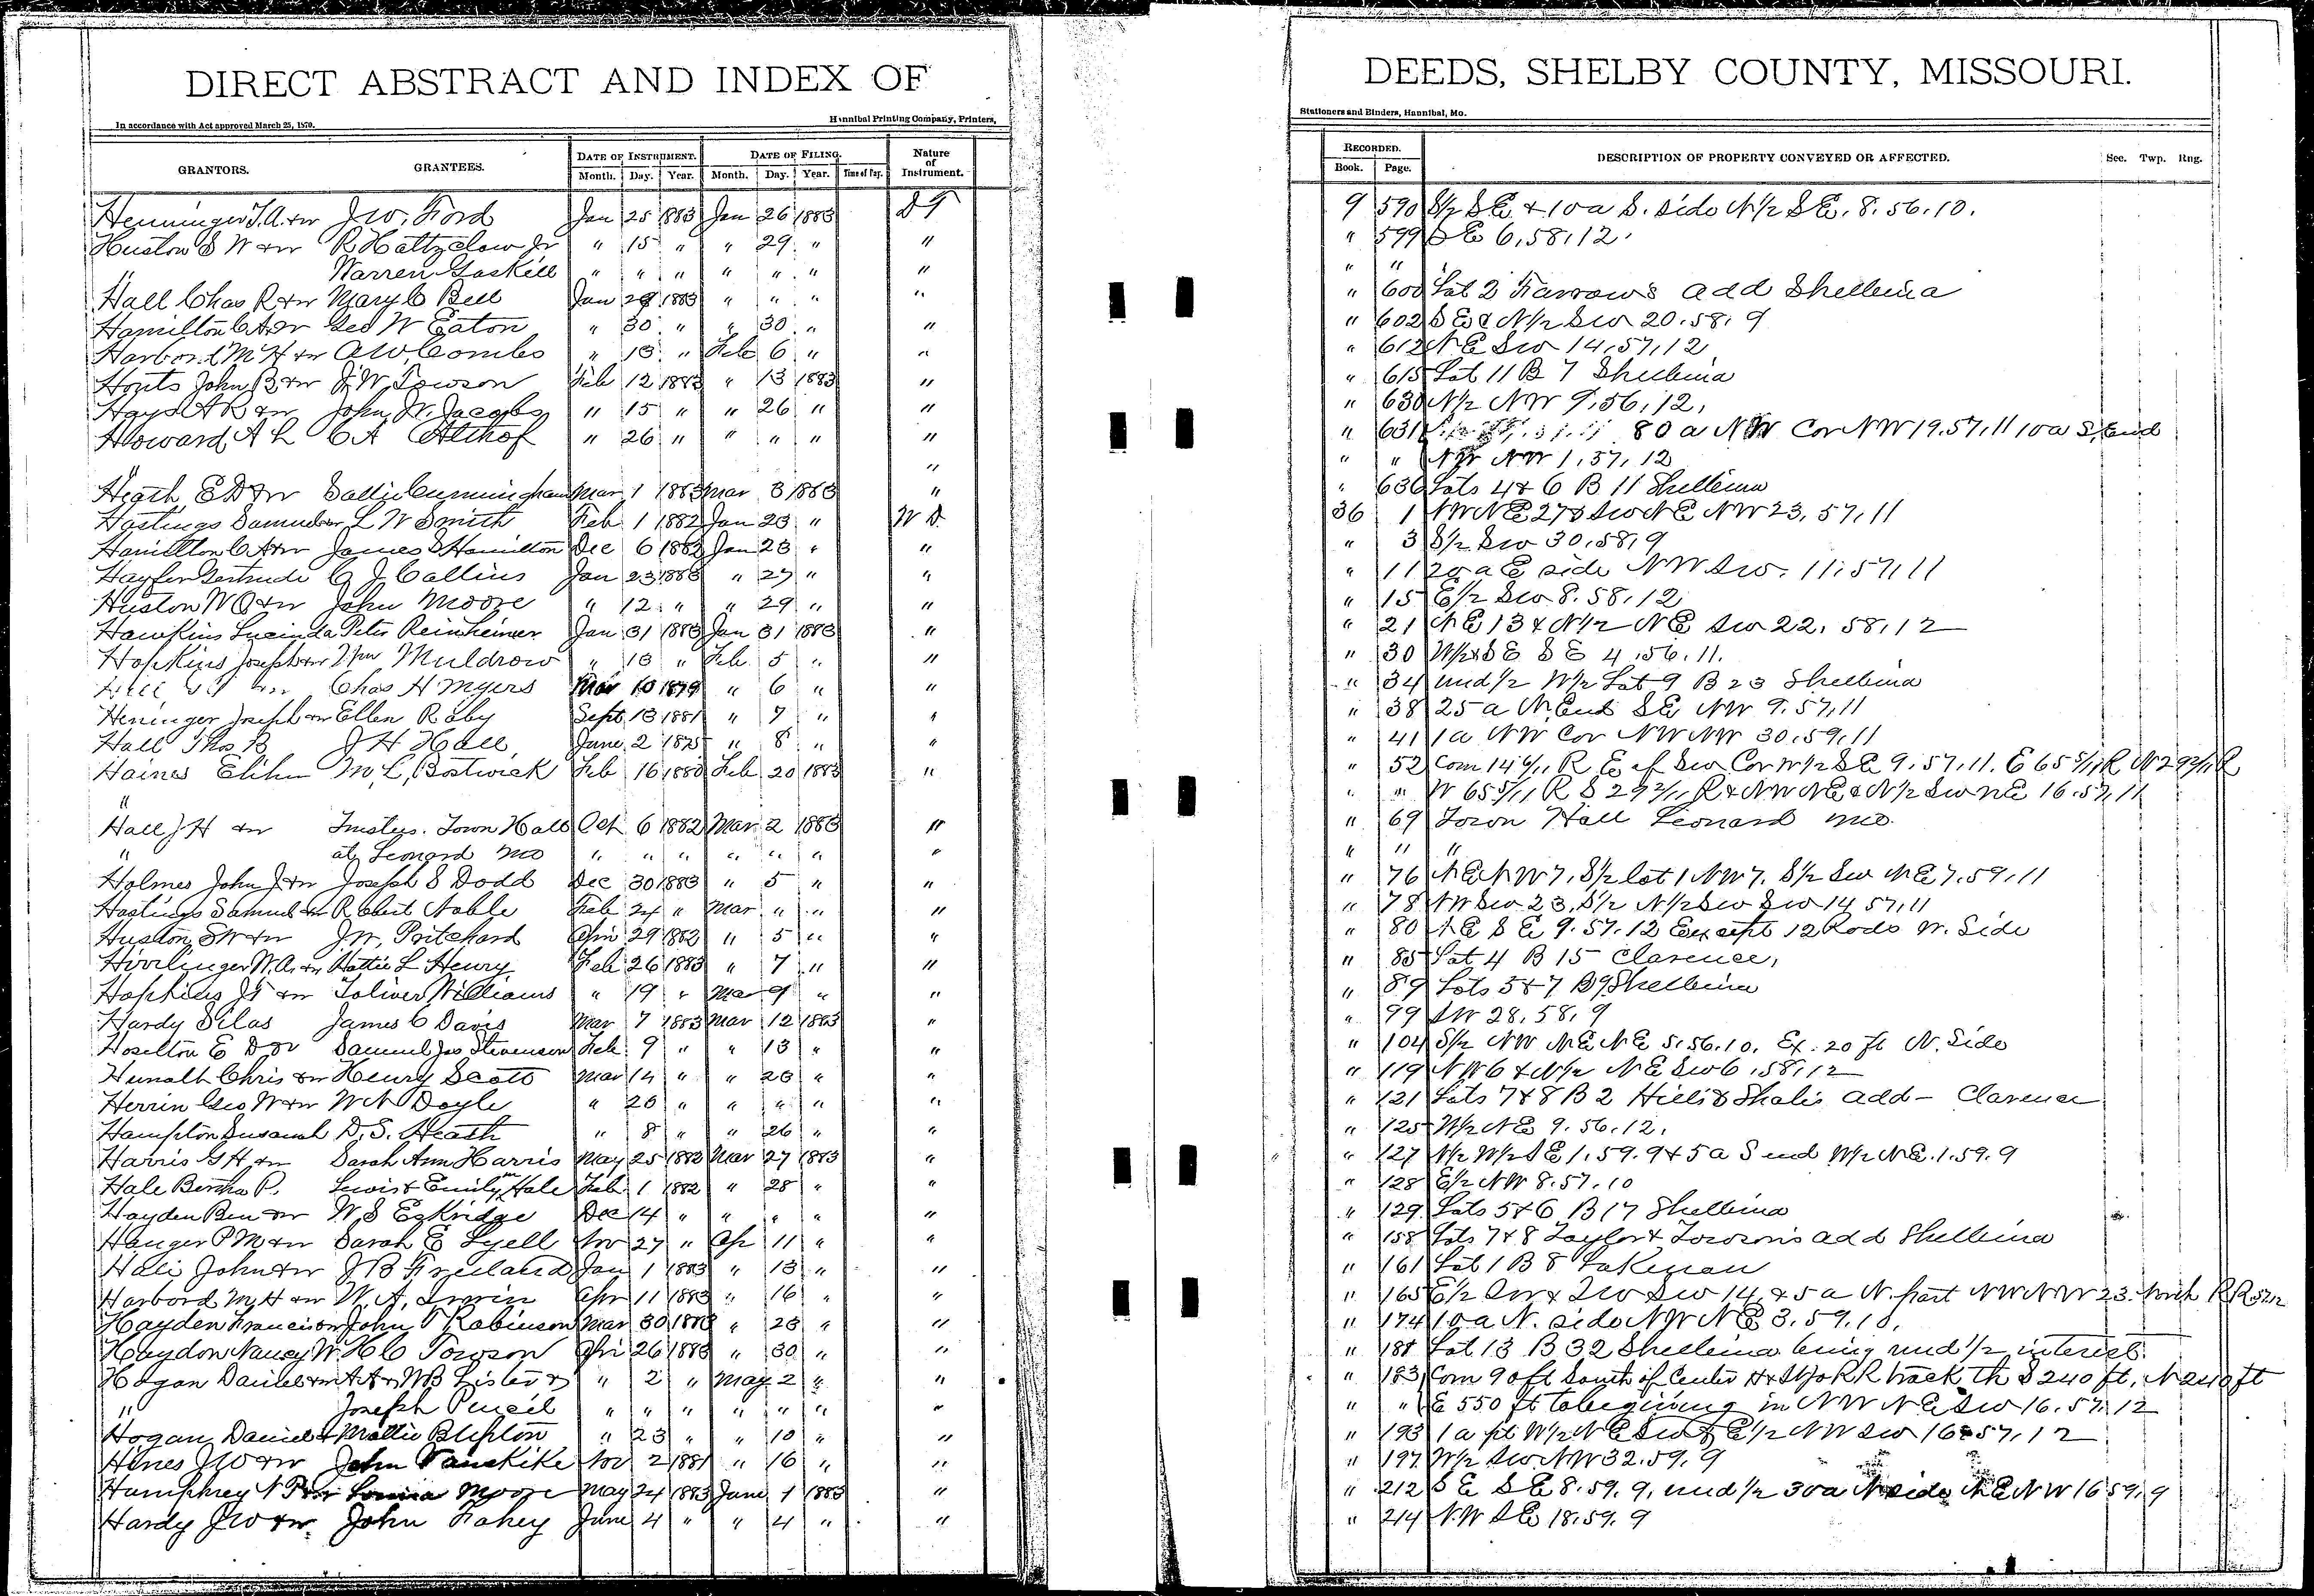 DIRECT ABSTRACT AND INDEX OF
DEEDS, SHELBY COUNTY, MISSOURI.
In accordance with Act approved March 25, 1870.
Hannibal Printing Company, Printers,
Stationers and Binders, Hannibal, Mo.
GRANTORS. GRANTEES. DATE OF INSTRUMENT. DATE OF FILING. Nature of Instrument. RECORDED. DESCRIPTION OF PROPERTY CONVEYED OR AFFECTED. Sec. Twp. Rng.
Month. Day. Year. Month. Day. Year. Book. Page.
Henninger T.A. &w J.W. Ford Jan 25 1883 Jan 26 1883 D T 9 590 S/2 SE & 10a S. side N/2 SE. 8.56.10.
Huston S W &w R Holtzclaw Jr " 15 " " 29 " " " 599 SE 6,58,12.
" Warren Gaskill " " " " " " " " "
Hall Chas R &w Mary C Bell Jan 29 1883 " " " " " 600 Lot 2 Farrow's add Shelbina
Hamilton C A &w Geo W Eaton " 30 " " 30 " " " 602 SE & N/2 SW 20.58.9
Harbord M H &w A W Combs " 13 " Feb 6 " " " 612 NE SW 14,57,12
Houts John B &w J.W. Towson Feb 12 1883 " 13 1883 " " 615 Lot 11 B 7 Shelbina
Hays A R &w John W. Jacobs " 15 " " 26 " " " 630 N/2 NW 9,56,12,
Howard A L C A Althof " 26 " " " " " " 631 80 a NW Cor NW 19.57.11 10a S. End
" " " " NW NW 1,57,12
Heath E D &w Sallie Cunningham Mar 1 1883 Mar 3 1883 " " 636 Lots 4 & 6 B 11 Shelbina
Hastings Samuel &w L W Smith Feb 1 1882 Jan 23 " W D 36 1 NW NE 27 & SW NE NW 23, 57, 11
Hamilton C A &w James S Hamilton Dec 6 1882 Jan 23 " " " 3 S/2 SW 30,58,9
Gertrude C J Collins Jan 23 1883 " 27 " " " 11 20 a E side NW SW. 11.57.11
Huston W O &w John Moore " 12 " " 29 " " " 15 E/2 SW 8.58.12
Hawkins Lucinda Peter Reinheimer Jan 31 1883 Jan 31 1883 " " 21 NE 13 & N/2 NE SW 22, 58, 12
Hopkins Joseph &w Wm Muldrow " 13 " Feb 5 " " " 30 W/2 & SE SE 4.56.11.
&w Chas H Myers Mar 10 1879 " 6 " " " 34 und 1/2 W/2 Lot 9 B 23 Shelbina
Heninger Joseph &w Ellen Raby Sept 13 1881 " 7 " " " 38 25 a N. End SE NW 9.57.11
Hall Thos B J H Hall June 2 1875 " 8 " " " 41 1a NW Cor NW NW 30.59.11
Haines Elihu M L Bostwick Feb 16 1880 Feb 20 1883 " " 52 Com 14 6/11 R E of SW Cor W/2 SE 9.57.11. E 65 5/11 R N 29 2/11 R
" " " W 65 5/11 R S 29 2/11 R & NW NE & N/2 SW NE 16.57.11
Hall J H &w Trustees. Town Hall Oct 6 1882 Mar 2 1883 " " 69 Town Hall Leonard Mo.
" at Leonard Mo " " " " " " " " " "
Holmes John J &w Joseph S Dodd Dec 30 1883 " 5 " " " 76 NE NW 7, S/2 lot 1 NW 7. S/2 SW NE 7.59.11
Hastings Samuel &w Robert Noble Feb 24 " Mar " " " " 78 NW SW 23, S/2 N/2 SW SW 14 57,11
Huston S W &w J.W. Pritchard Apr 29 1882 " 5 " " " 80 NE SE 9.57.12 Except 12 Rods W. Side
W.A. &w Hattie L Henry Feb 26 1883 " 7 " " " 85 Lot 4 B 15 Clarence,
Hopkins J T &w Toliver Williams " 19 " Mar 9 " " " 89 Lots 5 & 7 B 9 Shelbina
Hardy Silas James C Davis Mar 7 1883 Mar 12 1883 " " 99 SW 28,58,9
Hoselton E D &w Samuel Jas Stevenson Feb 9 " " 13 " " " 104 S/2 NW NE NE 5.56.10. Ex. 20 ft N. Side
Chris &w Henry Scott Mar 14 " " 23 " " " 119 NW 6 & N/2 NE SW 6,58,12
Herrin Geo W &w W N Doyle " 20 " " " " " " 121 Lots 7 & 8 B 2 add - Clarence
Hampton Susanah D.S. Heath " 8 " " 26 " " " 125 W/2 NE 9.56.12.
Harris G H &w Sarah Ann Harris May 25 1882 Mar 27 1883 " " 127 N/2 W/2 SE 1.59.9 & 5a S end W/2 NE.1.59.9
Hale Bertha P. Lewis & Emily M Hale Feb 1 1882 " 28 " " " 128 E/2 NW 8.57.10
Hayden Ben &w W S Eskridge Dec 14 " " " " " " 129 Lots 5 & 6 B 17 Shelbina
Hanger P M &w Sarah E Lyell Nov 27 " Apr 11 " " " 158 Lots 7 & 8 Taylor & Towson's add Shelbina
John &w J B Freeland Jan 1 1883 " 13 " " " 161 Lot 1 B 8 Lakenan
Harbord M H &w W. A. Irwin Apr 11 1883 " 16 " " " 165 E/2 SW & SW SW 14, & 5 a N. part NW NW 23. North RR 57.12
Hayden Francis &w John T Robinson Mar 30 1883 " 23 " " " 174 10a N. side NW NE 3.59.10.
Haydon Nancy W. H C Towson Apr 26 1883 " 30 " " " 181 Lot 13 B 32 Shelbina being und 1/2 interest.
Hogan Daniel &w A A & W B Lister & " 2 " May 2 " " " 183 Com 90 ft South of Center H & St Jo RR track th S 240 ft, N 240 ft
" Joseph Pencil " " " " " " " " " E 550 ft to begining in NW NE SW 16.57.12
Hogan Daniel & Mattie Blipton " 23 " " 10 " " " 193 1a pt W/2 NE SW & E/2 NW SW 16.57.12
Hines J W &w John Vanskike Nov 2 1881 " 16 " " " 197 W/2 SW NW 32.59.9
Humphrey N P &w Louisa Moore May 24 1883 June 1 1883 " " 212 SE SE 8.59.9, und 1/2 30a N side NE NW 16 59.9
Hardy J W &w John Fahey June 4 " " 4 " " " 214 NW SE 18.59.9